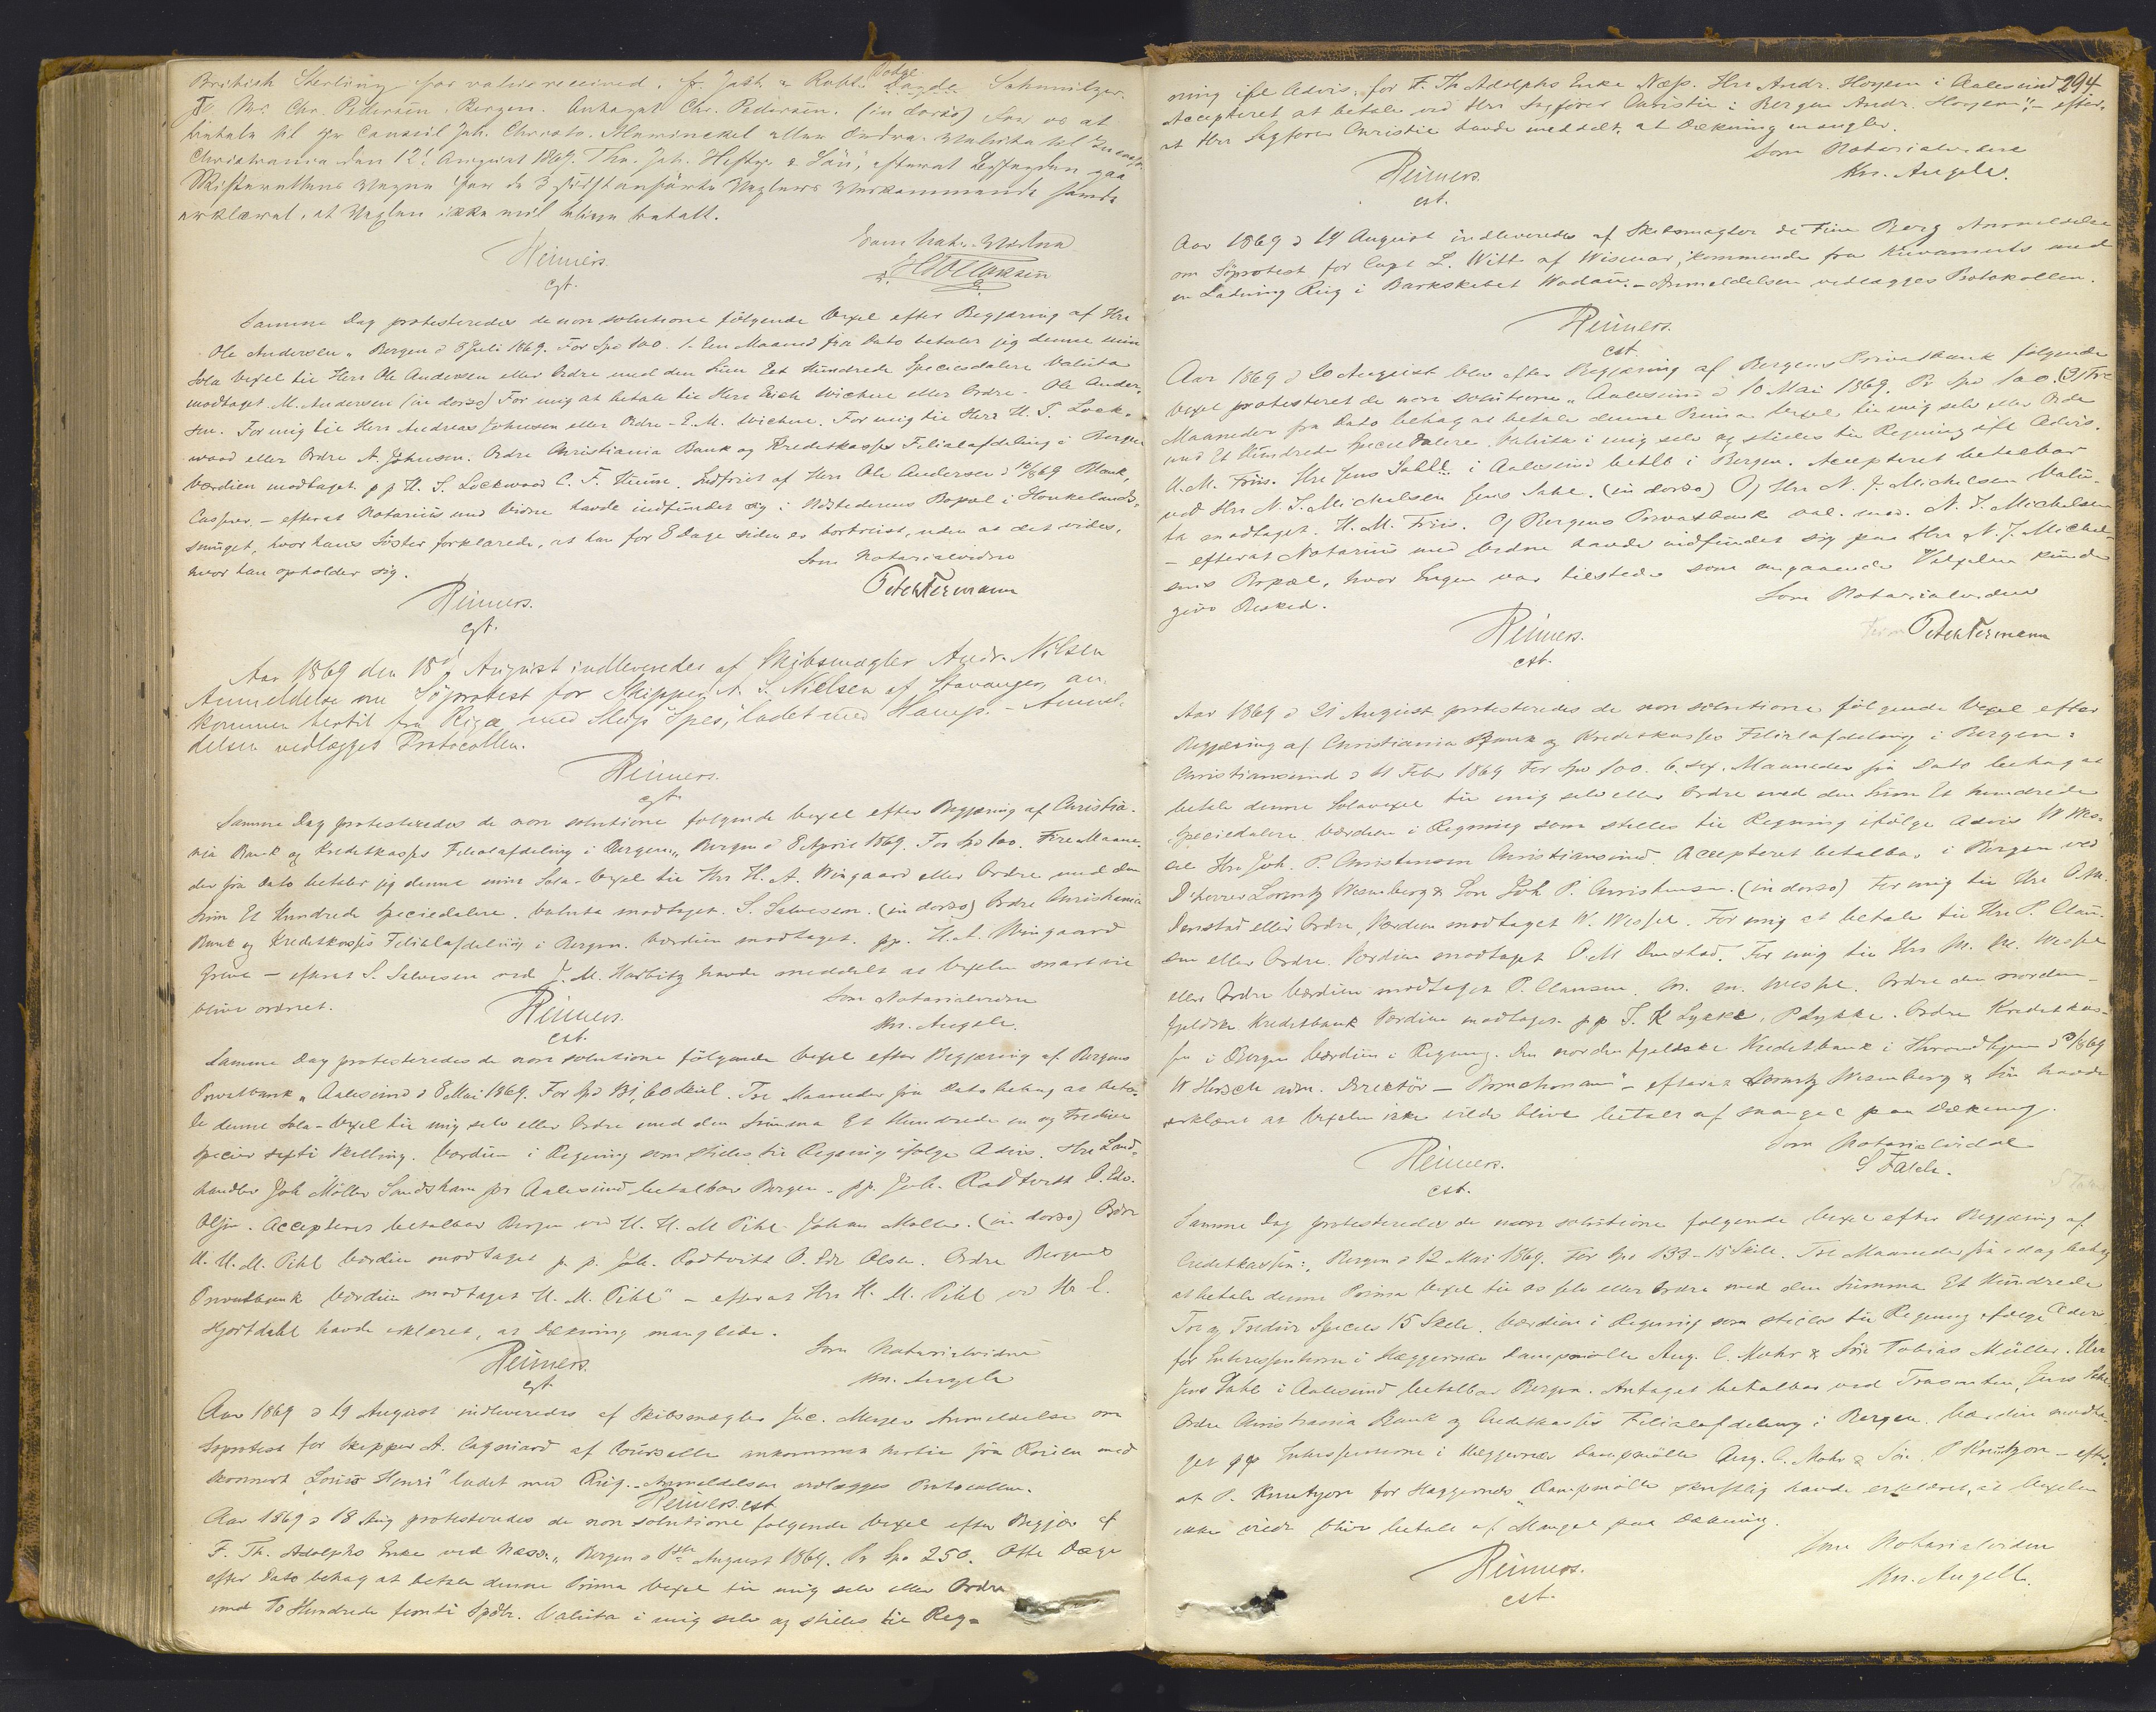 British Sterling for value received. fr. Jost & Dodge
To Mr. Chr. Pedersen, Bergen. Antaget Chr. Pedersen. (in dorso) for os at
betale til Hr Consul Joh. eller Ordre. Valuta til
Christiania den 12t August 1869. Tho. Joh. Heftye & Sön", efterat
Skifterettens Vegne for de 3 sidstanførte Vexlers Vedkommende havde
erklæret, at Vexlen ikke vil blive betalt.
Reimers
cst.
Som Not. Vidne
Samme Dag protesteredes de non solutione følgende Vexel efter Begjæring af Hrr
Ole Andersen „ Bergen d 8 Juli 1869. For Spd 100. 1. Een Maaned fra Dato betaler jeg denne min
Sola Vexel til Herr Ole Andersen eller Ordre med den Sum Eet Hundrede Speciesdalere Valuta
modtaget. M. Andersen (in dorso) For mig at betale til Herr Erich Wichne eller Ordre. Ole Ander-
sen. For mig til Herr Andreas Johnsen eller Ordre – E. M. Wichne. For mig til Herr H. S. Lock-
wood eller Ordre A. Johnsen. Ordre Christiania Bank og Kreditkasses Filialafdeling i Bergen
Værdien modtaget. pp H. S. Lockwood C. F. Indfriet af Herr Ole Andersen d
Casperr. – efterat Notarius med Vidne havde indfundet sig i Udstederens Bopæl i Haukelands-
smuget, hvor hans Søster forklarede, at han for 8 Dage siden er bortreist, uden at det vides,
hvor han opholder sig.
Som Notarialvidne
Reimers.
cst.
Peter Termann
Aar 1869 den 18d August indleveredes af Skibsmægler Andr. Nilsen
Anmeldelse om Søprotest for Skipper N. S. Nielsen af Stavanger, an-
kommen hertil fra Riga med Slup "Spes", ladet med Hamp. – Anmel-
delsen vedlægges Protocollen.
Reimers.
cst.
Samme Dag protesteredes de non solutione følgende Vexel efter Begjæring af Christia-
nia Bank og Kreditkasses Filialafdeling i Bergen „ Bergen d 8 April 1869. For Spd 100. Fire Maane-
der fra Dato betaler jeg denne min Sola-Vexel til Hrr H. A. Wingaard eller Ordre med den
Sum Et Hundrede Speciedalere. Valuta modtaget. S. Salvesen. (in dorso) Ordre Christiania
Bank og Kreditkasses Filialafdeling i Bergen. Værdien modtaget. pp. H. A. Wingaard
Greve – efterat S. Salvesen ved J. M. Harbitz havde meddelt at Vexelen snart vil
blive ordnet.
Som Notarialvidne
Reimers.
cst.
Kn. Angell.
Samme Dag protesteredes de non solutione følgende Vexel efter Begjæring af Bergens
Privatbank „ Aalesund d 8 Mai 1869. For Spd 131, 60 Skill. Tre Maaneder fra Dato behag at beta-
le denne Sola-Vexel til mig selv eller Ordre med den Summa Et Hundrede en og Tredive
Specier sexti Skilling. Værdien i Regning som stilles til Regning ifølge Advis. Hrr Land-
handler Joh Møller Sandshavn pr Aalesund betalbar Bergen. pp. Joh. Rødtvitt O. Edv.
Olsen. Accepteres betalbar Bergen ved H. H. M Pihl Johan Møller. (in dorso) Ordre
H. H. M. Pihl Værdien modtaget p p. Joh. Rødtvitt O. Edv Olsen. Ordre Bergens
Privatbank Værdien modtaget H. M. Pihl" – efterat Hrr H. M. Pihl ved Hr C.
Hjortdahl havde erklæret, at Dækning manglede.
Som Notarialvidne
Reimers.
cst.
Kn. Angell
Aar 1869 d 19 August indleveredes af Skibsmægler Jac. Meyer Anmeldelse om
Søprotest for Skipper A. Cagniard af ankommen hertil fra Rouen med
Skonnert "Louis Henri" ladet med Rug. – Anmeldelsen vedlægges Protocollen.
Reimers. cst
Aar 1869 d 18 Aug protesteredes de non solutione følgende Vexel efter Begjær. af
F. Th. Adolphs Enke ved Næss. „ Bergen d August 1869. Pr Spd 250. Otte Dage
efter Dato behag at betale denne Prima Vexel til mig selv eller Ordre
med To Hundrede femti Spdlr. Valuta i mig selv og stilles til Reg-
294
ning ifl Advis, for F. Th Adolphs Enke Næss. Hrr Andr. Horgen i Aalesund
Accepteret at betale ved Hrr Sagfører Christie i Bergen Andr. Horgen", – efter-
at Hrr Sagfører Christie havde meddelt, at Dækning mangler.
Som Notarialvidne
Reimers.
cst.
Kn. Angell.
Aar 1869 d 19 August indleveredes af Skibsmægler de Fine Berg Anmeldelse
om Søprotest for Capt L. Witt af Wismar, kommende fra med
en Ladning Rug i Barkskibet Wodan. – Anmeldelsen vedlægges Protokollen.
Reimers.
cst.
Aar 1869 d 20 August blev efter Begjæring af Bergens Privatbank følgende
Vexel protesteret de non solutione „ Aalesund d 10 Mai 1869. Pr Spd 100. (3) Tre
Maaneder fra Dato behag at betale denne Prima Vexel til mig selv eller Ordre
med Et Hundrede Speciedalere. Valuta i mig selv og stilles til Regning ifl Advis.
U. M. Friis. Hrr Jens Sahll i Aalesund betlb i Bergen. Accepteret betalbar
ved Hrr N. J. Michelsen Jens Sahl. (in dorso) Og Hrr N. J. Michelsen Valu-
ta modtaget. H. M. Friis. Og Bergens Privatbank val. mod. N. J. Michelsen
– efterat Notarius med Vidne havde indfundet sig paa Hrr N. J. Michel-
sens Bopæl, hvor Ingen var tilstede som angaaende Vexelen kunde
give Besked.
Som Notarialvidne
Reimers.
cst.
Peter Termann
Aar 1869 d 21 August protesteredes de non solutione følgende Vexel efter
Begjæring af Christiania Bank og Kreditkasses Filialafdeling i Bergen:
Christiansund d 11 Febr 1869 For Spd 100. 6. sex. Maaneder fra Dato behag at
betale denne Solavexel til mig selv eller Ordre med den Sum Et hundrede
Speciedalere Værdien i Regning som stilles til Regning ifølge Advis W Wes-
sel Hrr Joh. P. Christensen Christiansund. Accepteret betalbar i Bergen ved
D'herrer Lorentz Wesenberg & Søn Joh P. Christensen. (in dorso) For mig til Hrr O. M.
Denstad eller Ordre, Værdien modtaget W. Wessel. For mig at betale til Hrr P. Clau-
sen eller Ordre. Værdien modtaget O. M Denstad. For mig til Hrr M. M. Wessel
eller Ordre Værdien modtaget P. Clausen. M. M. Wessel. Ordre den norden-
fjeldske Kreditbank Værdien modtaget. pp J. K Lykke, P Lykke. Ordre Kreditkas-
sen i Bergen Værdien i Regning. Den nordenfjeldske Kreditbank i Throndhjem
W Hersch adm. Direktør – – efterat Lorentz Wesenberg & Søn havde
erklæret at Vexelen ikke vilde blive betalt af Mangel paa Dækning.
Som Notarialvidne
Reimers.
cst.
S Falch.
Samme Dag protesteredes de non solutione følgende Vexel efter Begjæring af
Creditkassen: „ Bergen d 12 Mai 1869. For Spd 133 – 15 Skill. Tre Maaneder fra idag behag
at betale denne Prima Vexel til os selv eller Ordre med den Summa Et Hundrede
Tre og Tredive Species 15 Skill. Værdien i Regning som stilles til Regning ifølge Advis
for Interessenterne i Hæggernæs Dampmølle Aug. C. Mohr & Søn Tobias Müller. Herr
Jens Sahl i Aalesund betalbar Bergen. Antaget betalbar ved Jens Sahl
Ordre Christiania Bank og Creditkasses Filialafdeling i Bergen. Værdien modta-
get pp Interessenterne i Hæggernæs Dampmølle Aug. C. Mohr & Søn. P Knutzon – efter-
at P. Knutzon for Hæggernæs Dampmølle skriftlig havde erklæret, at Vexelen
ikke vilde blive betalt af Mangel paa Dækning.
Som Notarialvidne
Reimers.
cst.
Kn. Angell.